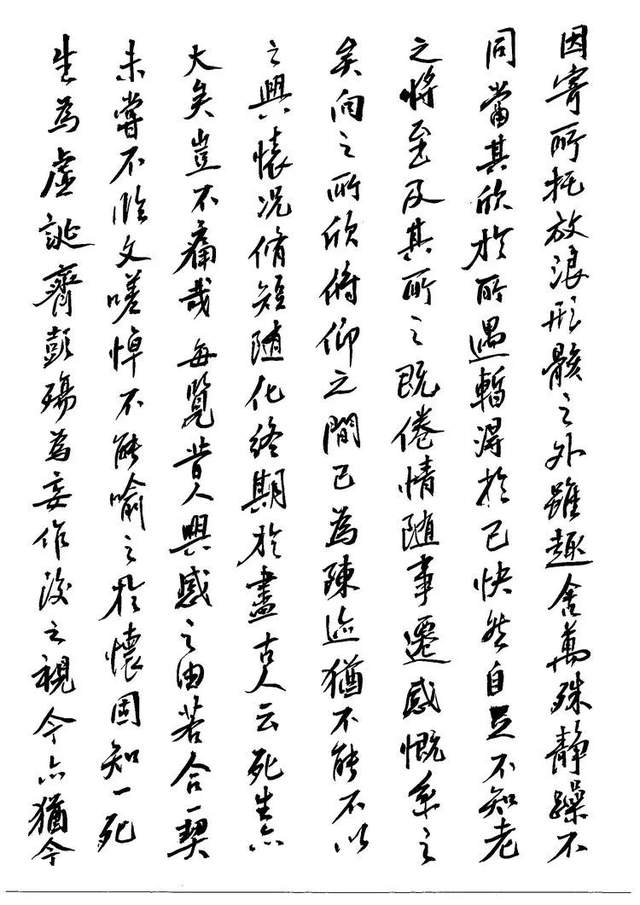 因寄所托放浪形骸之外雖趣舍萬殊靜躁不
同當其欣於所遇暫得於己快然自足不知老
之將至及其所之既倦情隨事遷感慨系之
矣向之所欣俯仰之間已為陳迹猶不能不以
之興懷況脩短隨化終期於盡古人云死生亦
大矣豈不痛哉每覽昔人興感之由若合一契
未嘗不臨文嗟悼不能喻之於懷固知一死
生為虛誕齊彭殤為妄作後之視今亦猶今